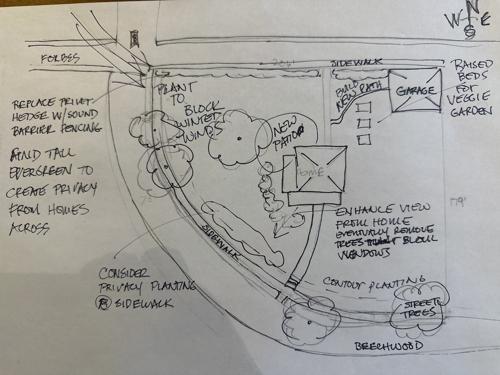 N
W
S
FORBES
200'
SIDEWALK
RAISED
BEDS
FOR
VEGGIE
GARDEN
GARAGE
BUILD
NEW PATH
PLANT
TO
BLOCK
WINTER
WINDS
REPLACE PRIVET
HEDGE W/SOUND
BARRIER FENCING
AND TALL
EVERGREEN TO
CREATE PRIVACY
FROM HOMES
ACROSS
NEW
PATIO
HOME
ENHANCE VIEW
FROM HOME
EVENTUALLY REMOVE
TREES THAT BLOCK
WINDOWS
SIDEWALK
CONSIDER
PRIVACY PLANTING
@ SIDEWALK
CONTOUR PLANTING
STREET
TREES
BEECHWOOD